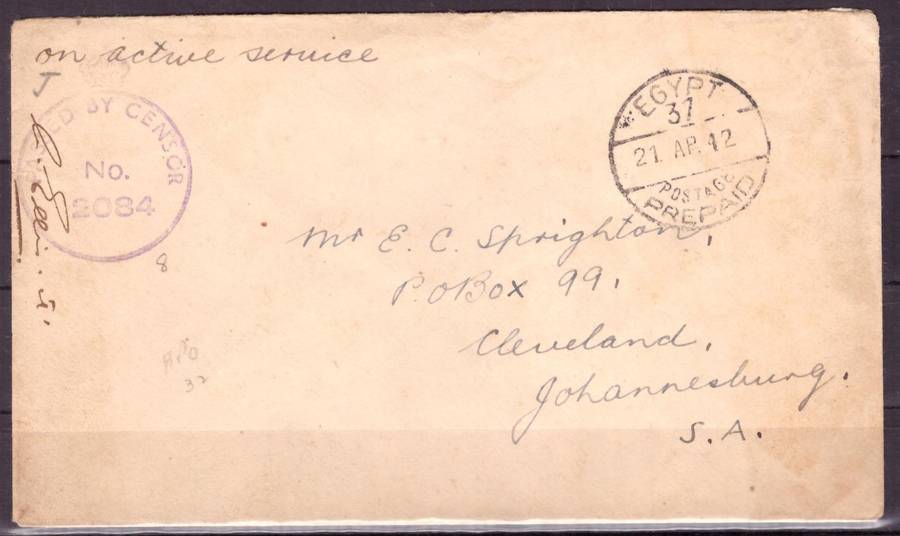 on active service
PASSED BY CENSOR
No.
2084
EGYPT
37
21 AP. 42
POSTAGE
PREPAID
8
Mr E. C. Sprighton,
P.O Box 99,
Cleveland,
Johannesburg.
S.A.
32